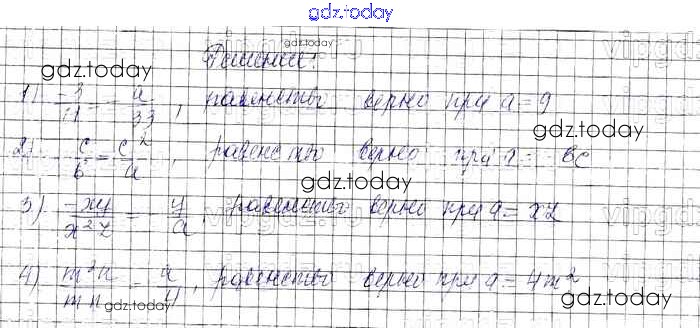 gdz.today
gdz.today
Решение:
gdz.today
1) -3/11 = -a/33, равенство верно при a = 9
gdz.today
2) -c/b = c²/a, равенство верно при a = -bc
gdz.today
3) -xy/x²z = -y/a, равенство верно при a = xz
4) m³n/mn = a/4, равенство верно при a = 4m²
gdz.today
gdz.today